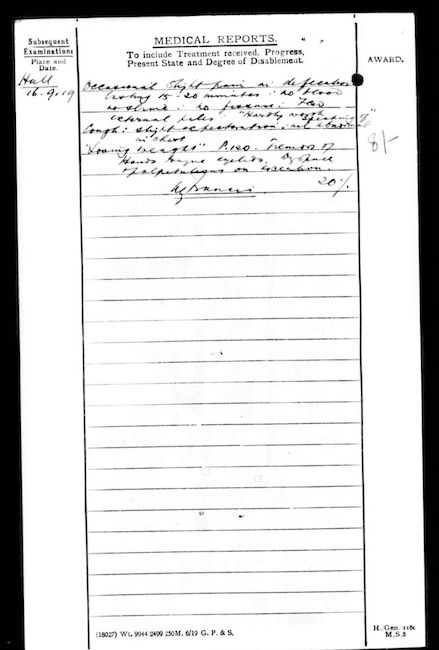 Subsequent
Examinations
Place and
Date.
MEDICAL REPORTS.
To include Treatment received, Progress,
Present State and Degree of Disablement.
AWARD.
Hull
16.9.19
Occasional slight pain on defecation
lasting 15-20 minutes: no blood
no slime: no fissure: Two
external piles "Hardly worth speaking of"
Cough: slight expectoration, nil abnormal
in chest
"Losing weight" P.120. Tremors of
Hands tongue eyelids. Dyspnoea
palpitations on exertion.
20%
8/-
(18027) Wt. 9944/2499 250M. 6/19 G. P. & S.
H. Gen. 116c
M.S.6